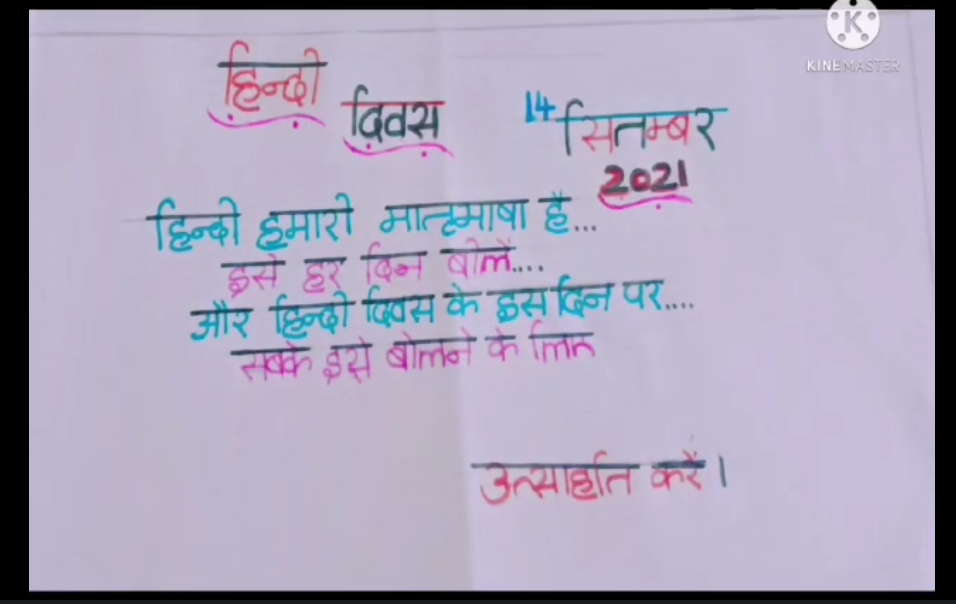 KINEMASTER
हिन्दी
दिवस 14 सितम्बर
2021
हिन्दी हमारी मातृभाषा है...
इसे हर दिन बोलें....
और हिन्दी दिवस के इस दिन पर....
सबके इसे बोलने के लिए
उत्साहित करें।